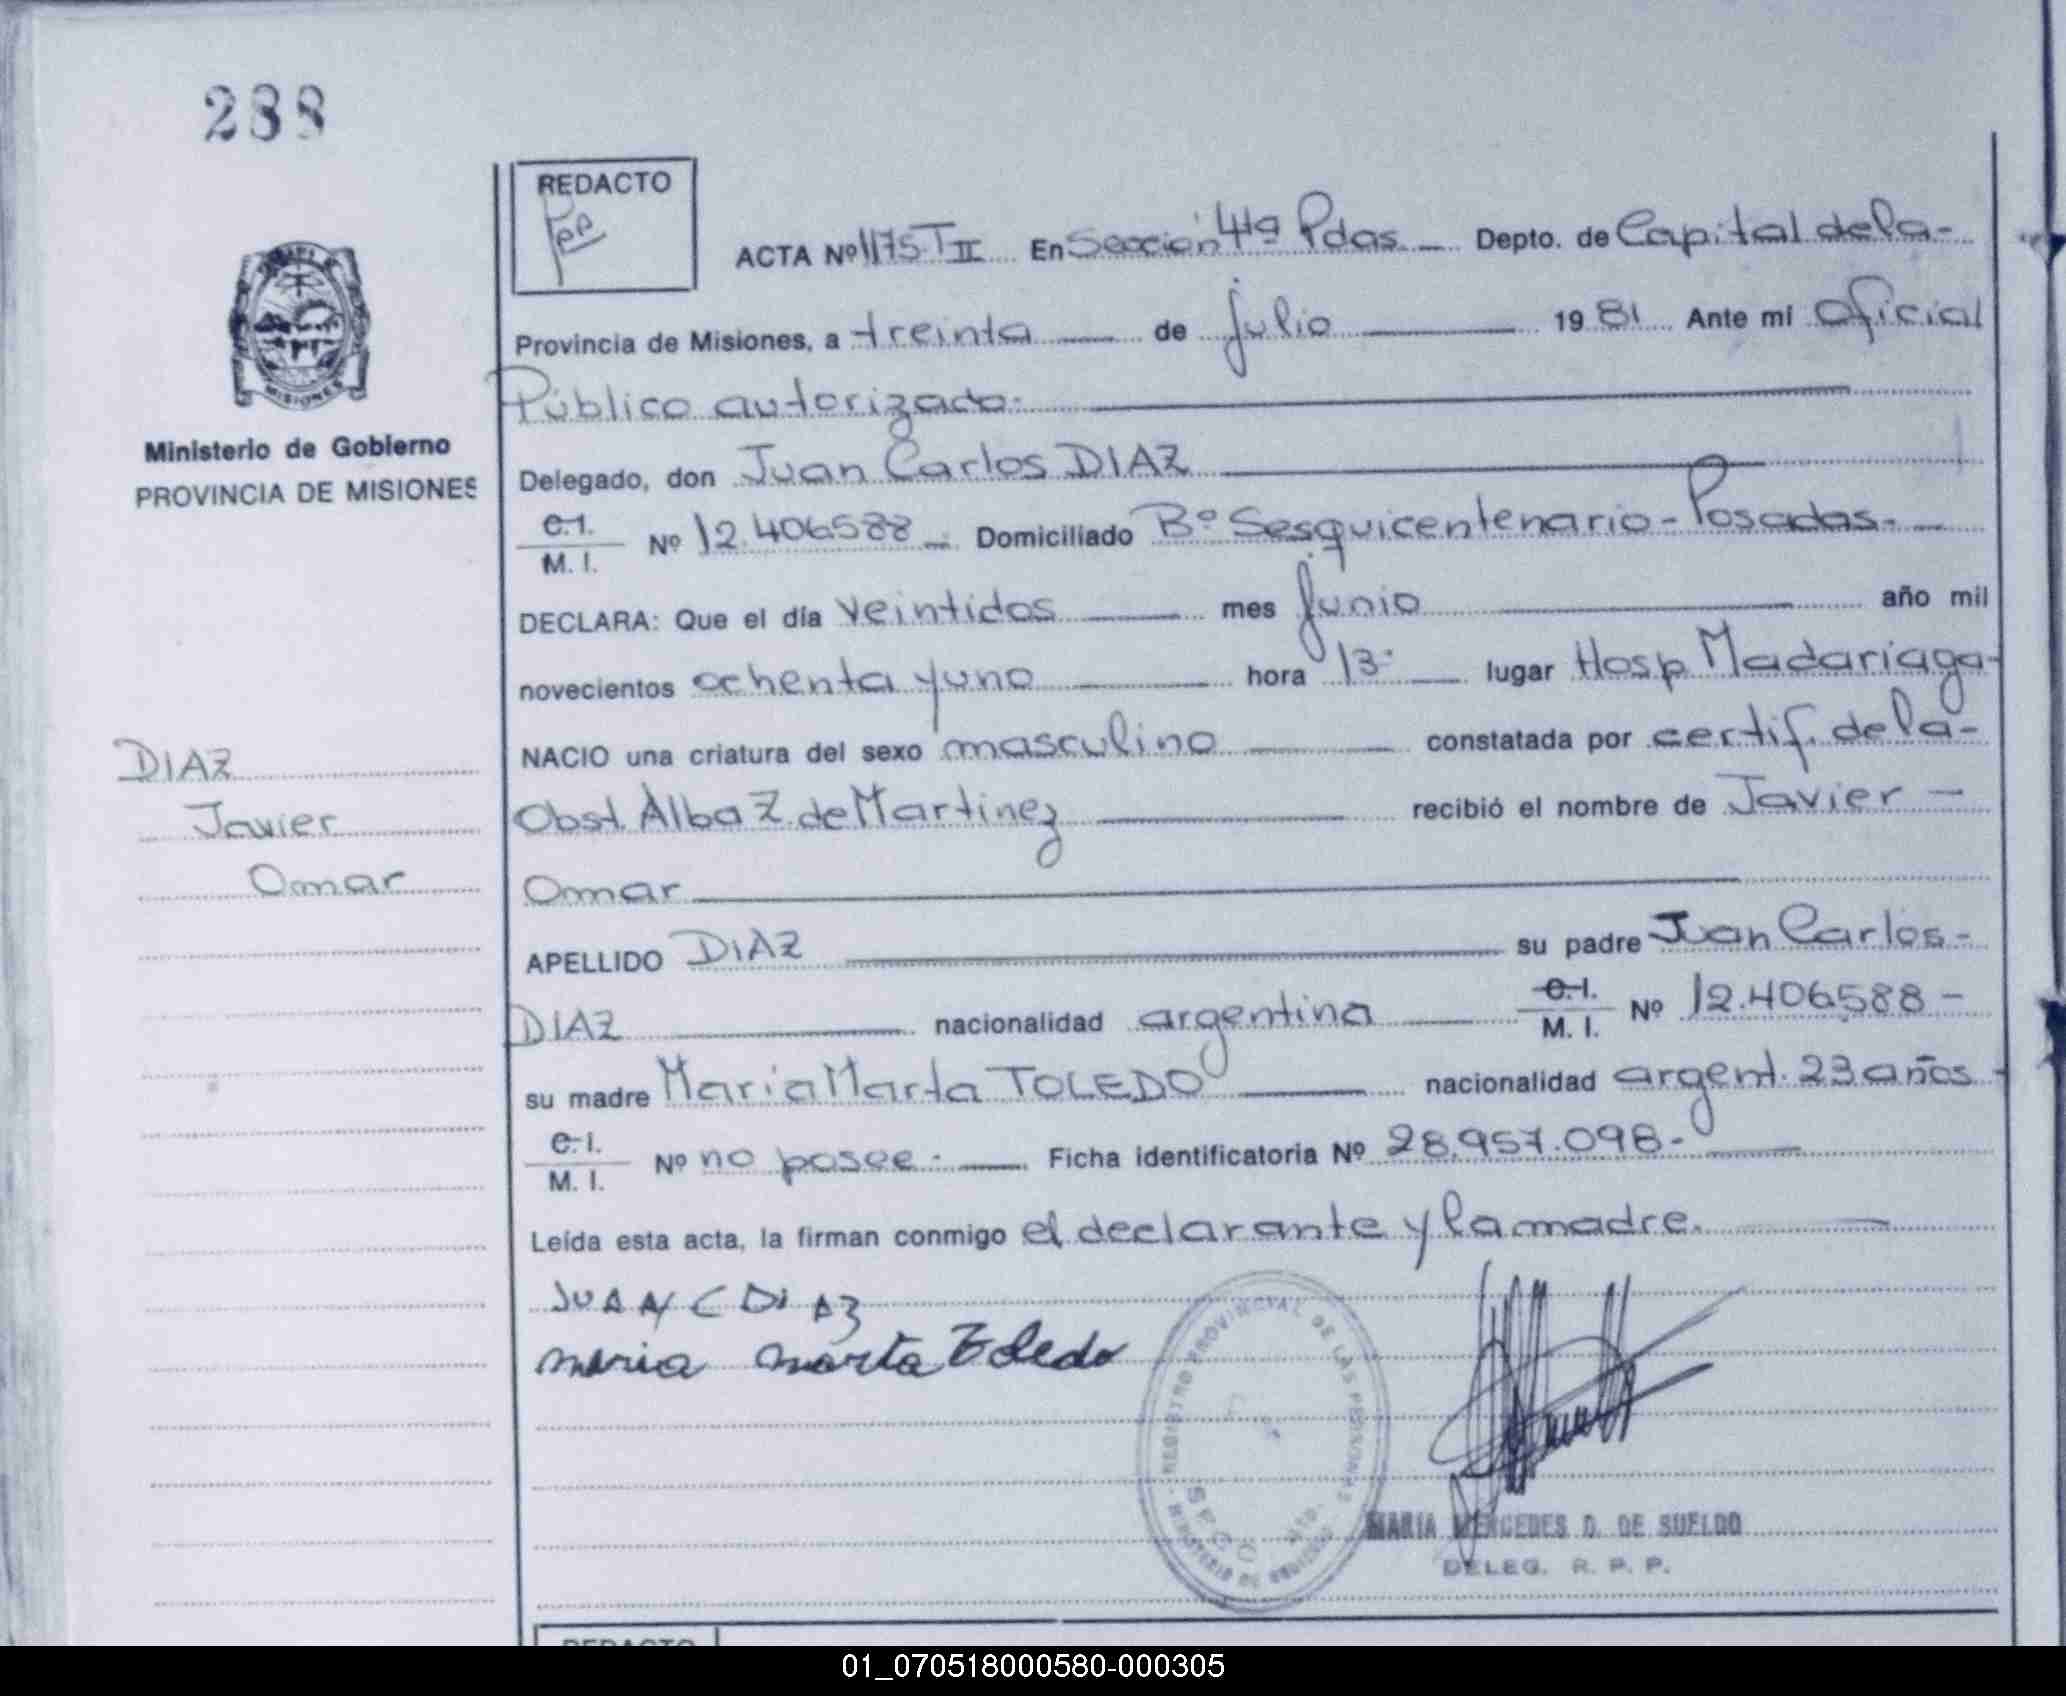 288
REDACTO
ACTA Nº 1175 T II En Sección 4ta Pdas. Depto. de Capital de la-
Provincia de Misiones, a treinta de julio 1981 Ante mi Oficial
Público autorizado.
Delegado, don Juan Carlos DIAZ
C.I.
M. I. Nº 12.406588 Domiciliado Bº Sesquicentenario-Posadas-
DECLARA: Que el día veintidos mes junio año mil
novecientos ochenta y uno hora 13· lugar Hosp Madariaga-
NACIO una criatura del sexo masculino constatada por certif. de la-
Obst. Alba Z. de Martinez recibió el nombre de Javier -
Omar
APELLIDO DIAZ su padre Juan Carlos-
DIAZ nacionalidad argentina C.I. M. I. Nº 12.406588-
su madre Maria Marta TOLEDO nacionalidad argent. 23 años -
C.I.
M. I. Nº no posee. Ficha identificatoria Nº 28.957.098-
Leída esta acta, la firman conmigo el declarante y la madre.
JUAN C DiAz
maria marta Toledo
REGISTRO PROVINCIAL DE LAS PERSONAS
MARIA MERCEDES D. DE SUELDO
DELEG. R. P. P.
REDACTO
MISIONES
Ministerio de Gobierno
PROVINCIA DE MISIONES
DIAZ
Javier
Omar
01_070518000580-000305